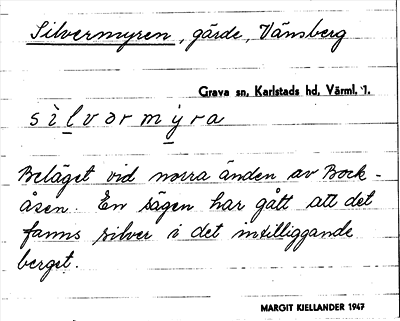 Silvermyren, gärde, Vänsberg
Grava sn, Karlstads hd, Värml. l.
sìlvərmýra
Beläget vid norra änden av Bock-
åsen. En sägen har gått att det
fanns silver i det intilliggande
berget.
MARGIT KIELLANDER 1947